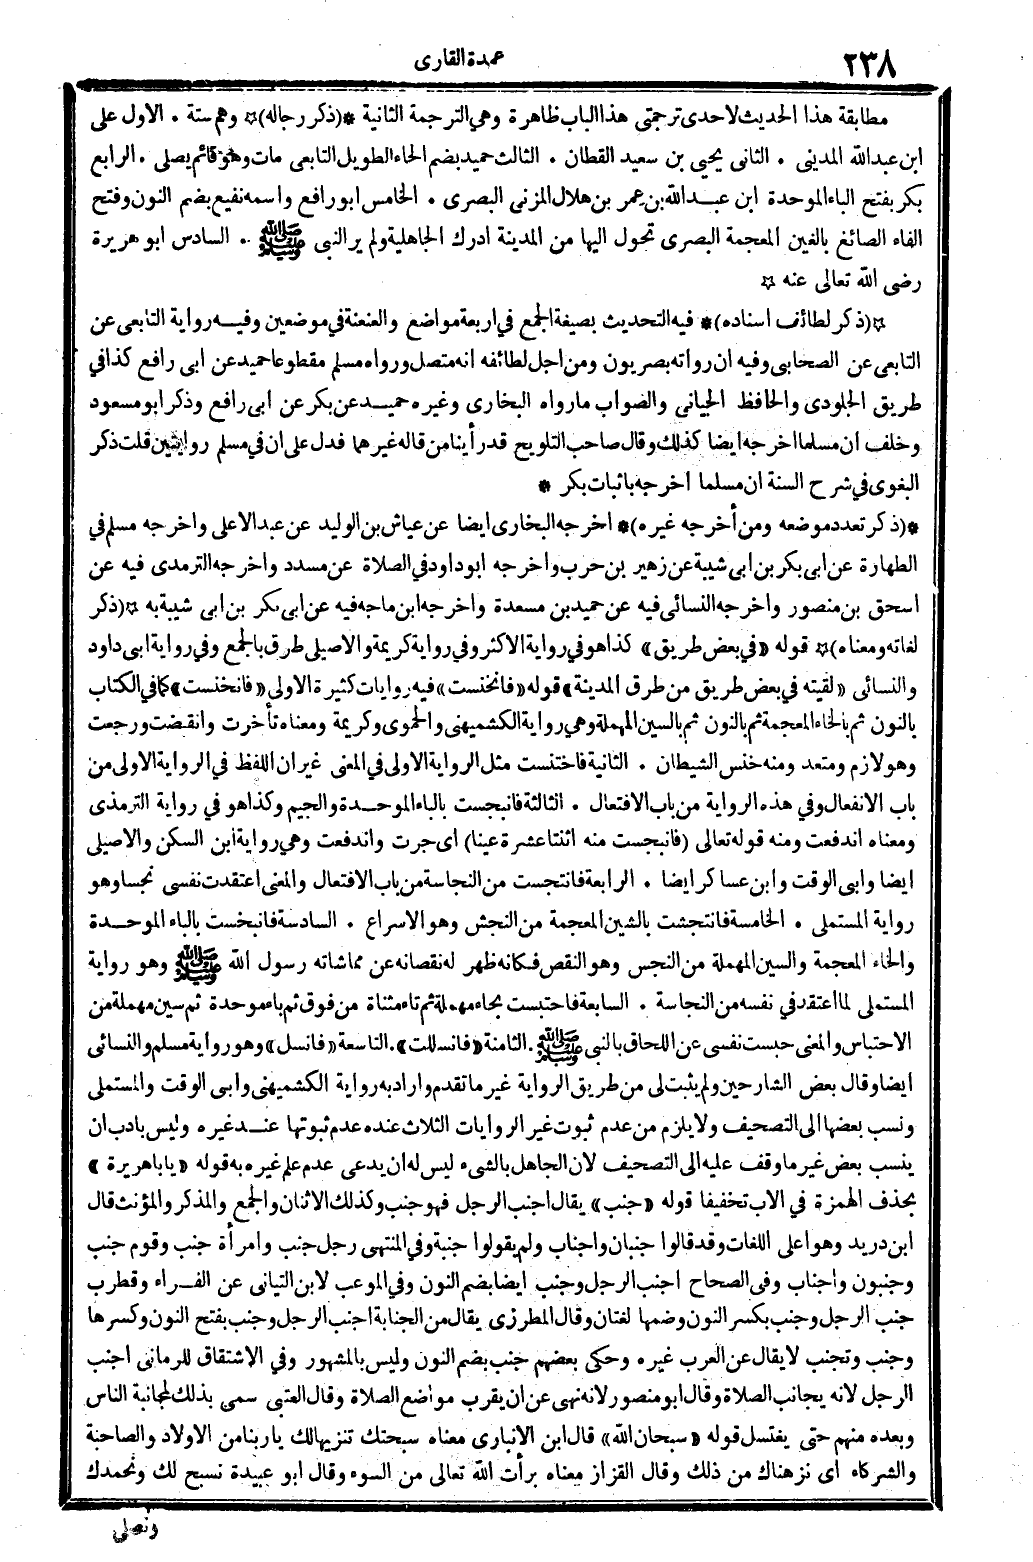 ٢٣٨
عمدة القارى
مطابقة هذا الحديث لاحدى ترجمتى هذا الباب ظاهرة وهي الترجمة الثانية * (ذكر رجاله)☆ وهم ستة . الاول على
ابن عبدالله المدينى . الثانى يحيى بن سعيد القطان . الثالث حميد بضم الحاء الطويل التابعى مات وهو قائم يصلى . الرابع
بكر بفتح الباء الموحدة ابن عبدالله بن عمر بن هلال المزنى البصرى . الخامس ابو رافع واسمه نفيع بضم النون وفتح
الفاء الصائغ بالغين المعجمة البصرى تحول اليها من المدينة أدرك الجاهلية ولم ير النبى ﷺ . السادس ابو هريرة
رضى الله تعالى عنه ☆
☆(ذكر لطائف اسناده)* فيه التحديث بصيغة الجمع في اربعة مواضع والعنعنة في موضعين وفيه رواية التابعى عن
التابعى عن الصحابى وفيه ان رواته بصريون ومن اجل لطائفه انه متصل ورواه مسلم مقطوعا حميد عن ابى رافع كذا في
طريق الجلودى والحافظ الجيانى والصواب ما رواه البخارى وغيره حميد عن بكر عن ابى رافع وذكر ابو مسعود
وخلف ان مسلما اخرجه ايضا كذلك وقال صاحب التلويح قد رأينا من قاله غيرهما فدل على ان في مسلم روايتين قلت ذكر
البغوى في شرح السنة ان مسلما اخرجه باثبات بكر *
*(ذكر تعدد موضعه ومن أخرجه غيره)* اخرجه البخارى ايضا عن عياش بن الوليد عن عبد الاعلى واخرجه مسلم في
الطهارة عن ابى بكر بن ابى شيبة عن زهير بن حرب واخرجه ابو داود في الصلاة عن مسدد واخرجه الترمذى فيه عن
اسحق بن منصور واخرجه النسائى فيه عن حميد بن مسعدة واخرجه ابن ماجه فيه عن ابى بكر بن ابى شيبة به ☆(ذكر
لغاته ومعناه)☆ قوله «في بعض طريق» كذا هو في رواية الاكثر وفي رواية كريمة والاصيلى طرق بالجمع وفي رواية ابى داود
والنسائى «لقيته في بعض طريق من طرق المدينة» قوله «فانخنست» فيه روايات كثيرة الاولى «فانخنست» كما في الكتاب
بالنون ثم بالخاء المعجمة ثم بالنون ثم بالسين المهملة وهي رواية الكشميهنى والحموى وكريمة ومعناه تأخرت وانقضت ورجعت
وهو لازم ومتعد ومنه خنس الشيطان . الثانية فاختنست مثل الرواية الاولى في المعنى غير ان اللفظ في الرواية الاولى من
باب الانفعال وفي هذه الرواية من باب الافتعال . الثالثة فانبجست بالباء الموحدة والجيم وكذا هو في رواية الترمذى
ومعناه اندفعت ومنه قوله تعالى (فانبجست منه اثنتا عشرة عينا) اى جرت واندفعت وهي رواية ابن السكن والاصيلى
ايضا وابى الوقت وابن عساكر ايضا . الرابعة فانتجست من النجاسة من باب الافتعال والمعنى اعتقدت نفسى نجسا وهو
رواية المستملى . الخامسة فانتجشت بالشين المعجمة من النجش وهو الاسراع . السادسة فانبخست بالباء الموحدة
والخاء المعجمة والسين المهملة من النجس وهو النقص فكانه ظهر له نقصانه عن مماشاته رسول الله ﷺ وهو رواية
المستملى لما اعتقد في نفسه من النجاسة . السابعة فاحتبست بحاء مهملة ثم تاء مثناة من فوق ثم باء موحدة ثم سين مهملة من
الاحتباس والمعنى حبست نفسى عن اللحاق بالنبى ﷺ . الثامنة «فانسللت». التاسعة «فانسل» وهو رواية مسلم والنسائى
ايضا وقال بعض الشارحين ولم يثبت لى من طريق الرواية غير ما تقدم واراد به رواية الكشميهنى وابى الوقت والمستملى
ونسب بعضها الى التصحيف ولا يلزم من عدم ثبوت غير الروايات الثلاث عنده عدم ثبوتها عند غيره وليس بادب ان
ينسب بعض غير ما وقف عليه الى التصحيف لان الجاهل بالشىء ليس له ان يدعى عدم علم غيره به قوله «يا باهريرة»
بحذف الهمزة في الاب تخفيفا قوله «جنب» يقال اجنب الرجل فهو جنب وكذلك الاثنان والجمع والمذكر والمؤنث قال
ابن دريد وهو اعلى اللغات وقد قالوا جنبان واجناب ولم يقولوا جنبة وفي المنتهى رجل جنب وامرأة جنب وقوم جنب
وجنبون واجناب وفى الصحاح اجنب الرجل وجنب ايضا بضم النون وفي الموعب لابن التيانى عن الفراء وقطرب
جنب الرجل وجنب بكسر النون وضمها لغتان وقال المطرزى يقال من الجنابة اجنب الرجل وجنب بفتح النون وكسرها
وجنب وتجنب لا يقال عن العرب غيره وحكى بعضهم جنب بضم النون وليس بالمشهور وفي الاشتقاق للرمانى اجنب
الرجل لانه يجانب الصلاة وقال ابو منصور لانه نهى عن ان يقرب مواضع الصلاة وقال العتبى سمى بذلك لمجانبة الناس
وبعده منهم حتى يغتسل قوله «سبحان الله» قال ابن الانبارى معناه سبحتك تنزيها لك يا ربنا من الاولاد والصاحبة
والشركاء اى نزهناك من ذلك وقال القزاز معناه برأت الله تعالى من السوء وقال ابو عبيدة نسبح لك ونحمدك
ونصلى